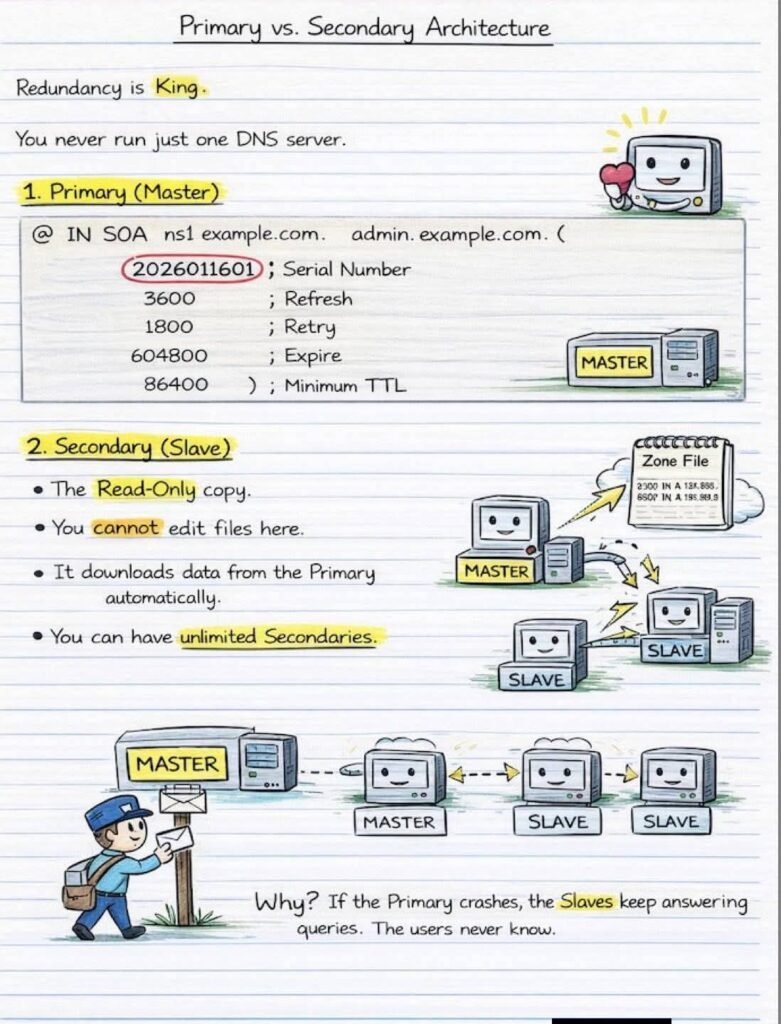 Primary vs. Secondary Architecture
Redundancy is King.
You never run just one DNS server.
1. Primary (Master)
@ IN SOA ns1 example.com. admin. example.com. (
2026011601 ; Serial Number
3600 ; Refresh
1800 ; Retry
604800 ; Expire
86400 ) ; Minimum TTL
MASTER
2. Secondary (Slave)
• The Read-Only copy.
• You cannot edit files here.
• It downloads data from the Primary
automatically.
• You can have unlimited Secondaries.
Zone File
MASTER
SLAVE
SLAVE
MASTER
MASTER
SLAVE
SLAVE
Why? If the Primary crashes, the Slaves keep answering
queries. The users never know.